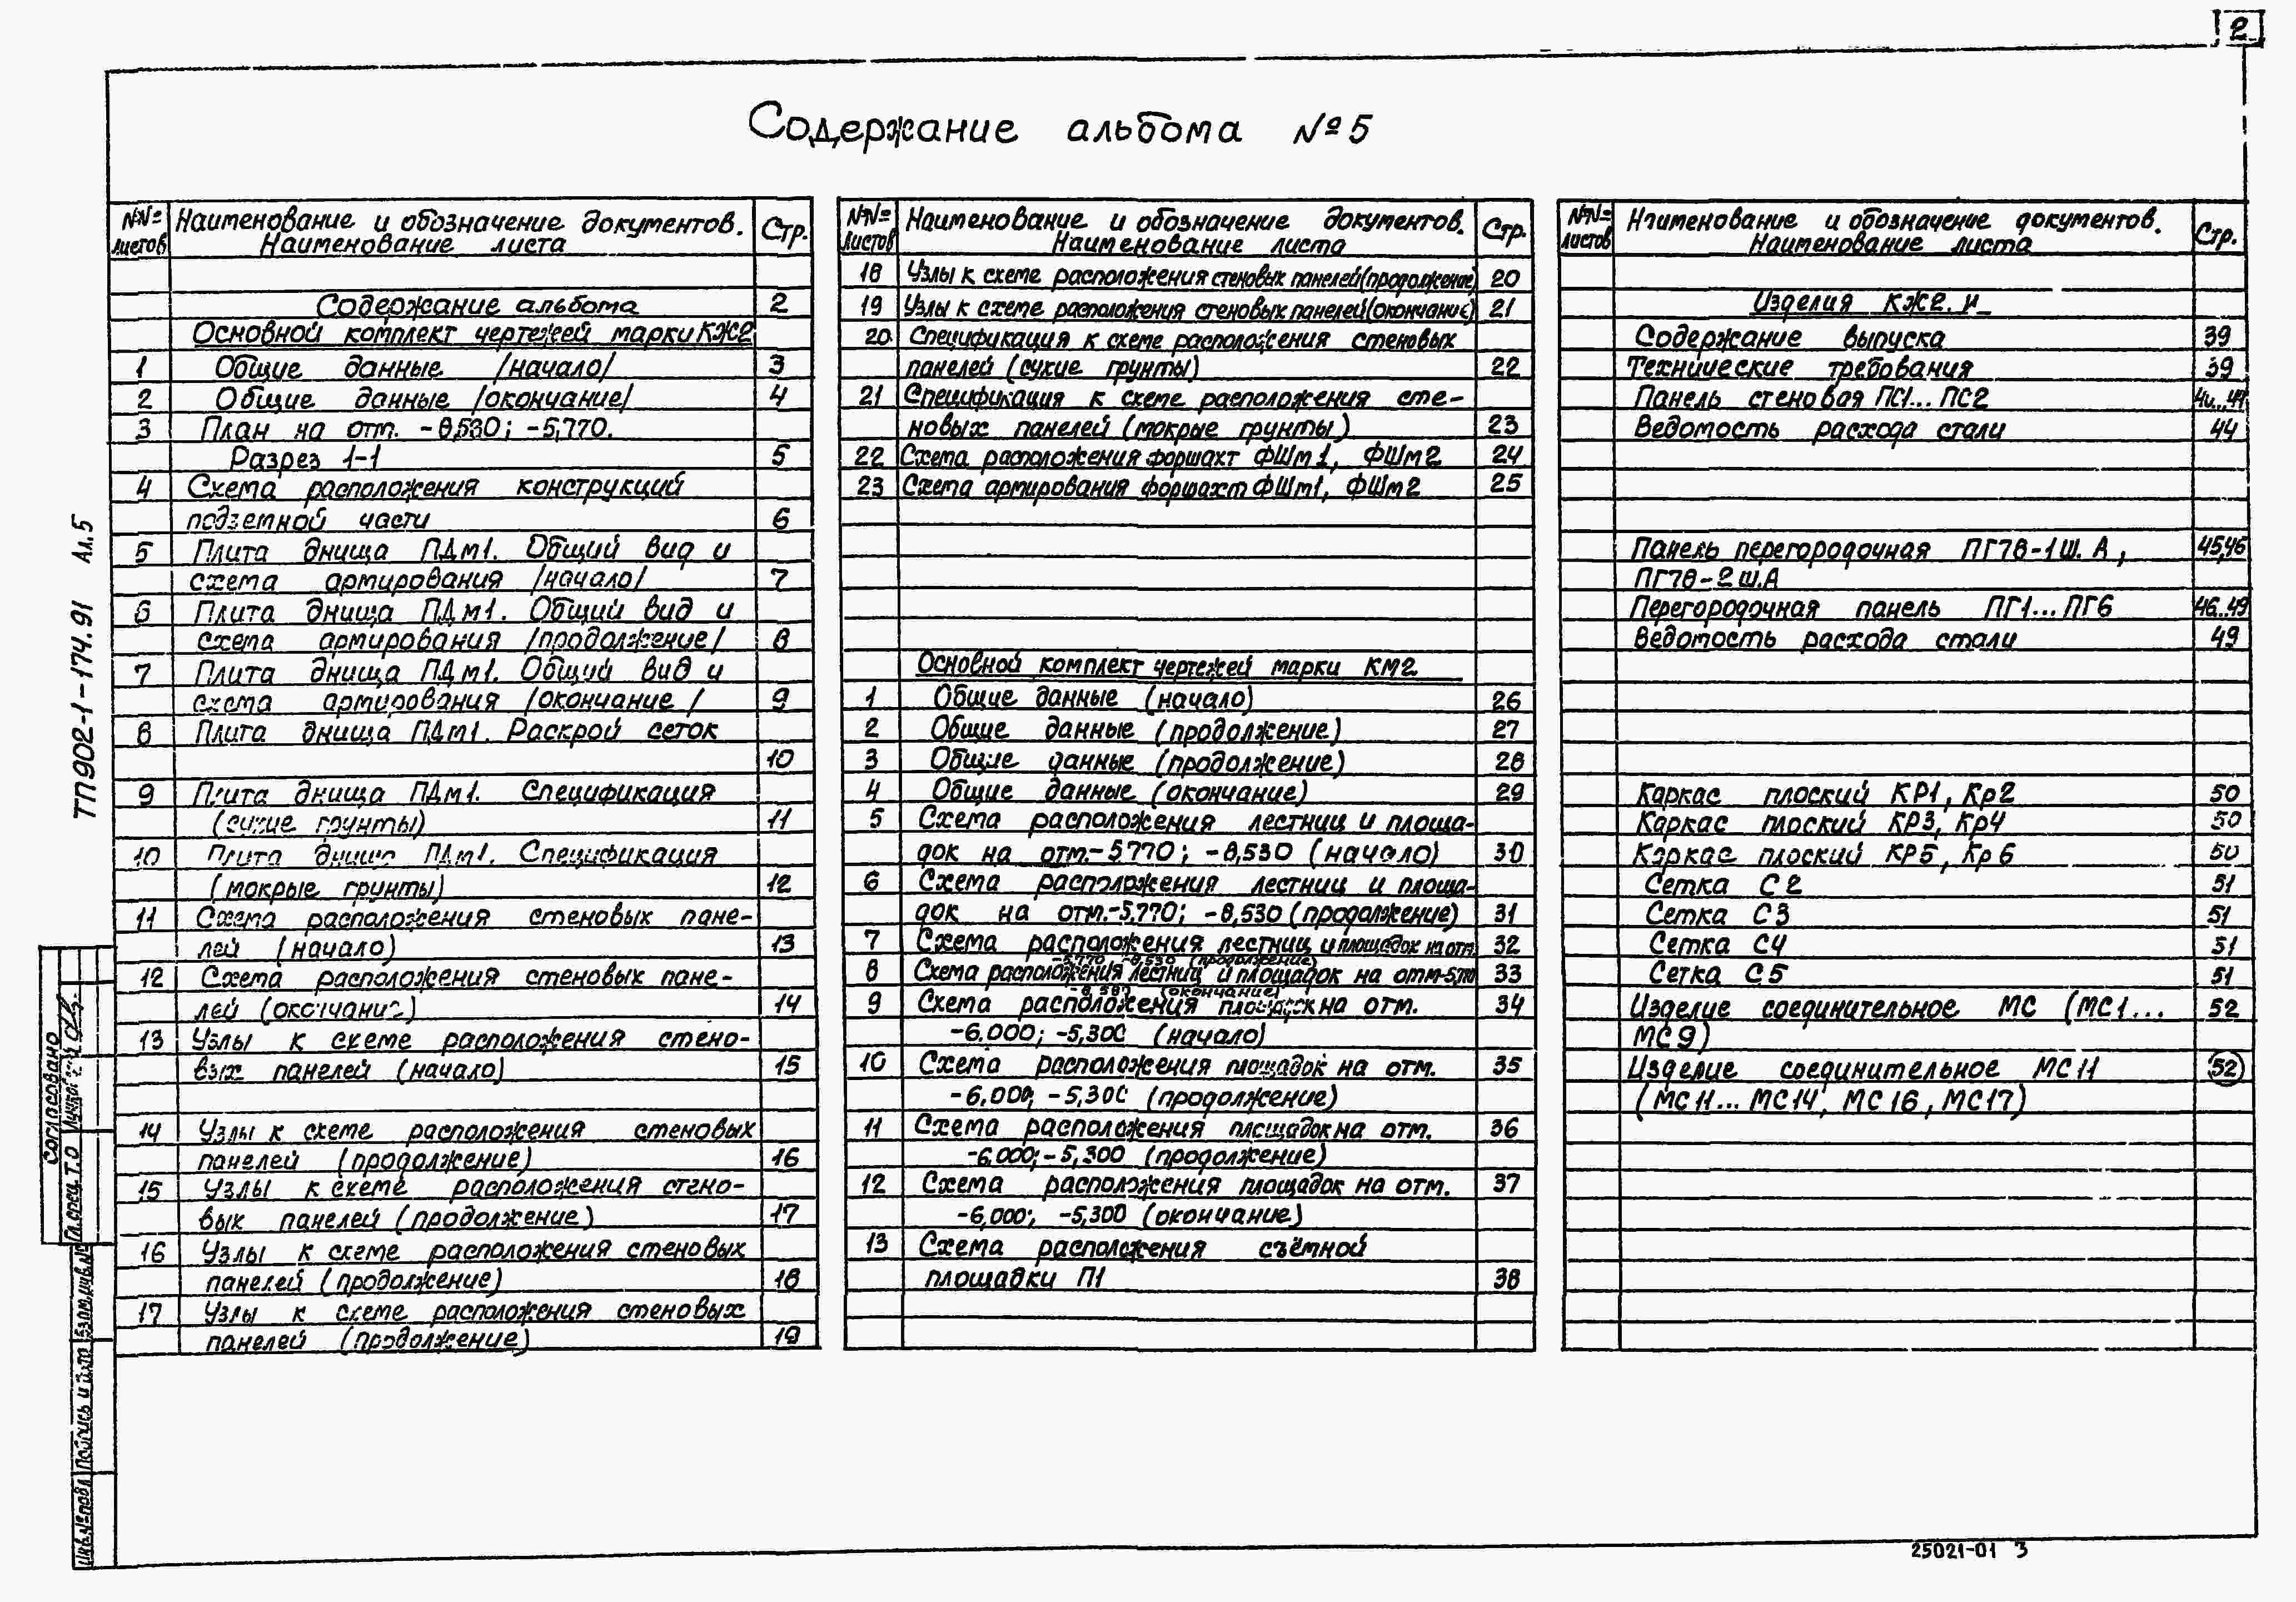 2
Содержание альбома №5
NN= листов
Наименование и обозначение документов. Наименование листа
Стр.
Содержание альбома 2
Основной комплект чертежей марки КЖ2
1 Общие данные /начало/ 3
2 Общие данные /окончание/ 4
3 План на отм. -8,530; -5,770.
Разрез 1-1 5
4 Схема расположения конструкций
подземной части 6
5 Плита днища ПДм1. Общий вид и
схема армирования /начало/ 7
6 Плита днища ПДм1. Общий вид и
схема армирования /продолжение/ 8
7 Плита днища ПДм1. Общий вид и
схема армирования /окончание/ 9
8 Плита днища ПДм1. Раскрой сеток
10
9 Плита днища ПДм1. Спецификация
(сухие грунты) 11
10 Плита днища ПДм1. Спецификация
(мокрые грунты) 12
11 Схема расположения стеновых пане-
лей (начало) 13
12 Схема расположения стеновых пане-
лей (окончание) 14
13 Узлы к схеме расположения стено-
вых панелей (начало) 15
14 Узлы к схеме расположения стеновых
панелей (продолжение) 16
15 Узлы к схеме расположения стено-
вых панелей (продолжение) 17
16 Узлы к схеме расположения стеновых
панелей (продолжение) 18
17 Узлы к схеме расположения стеновых
панелей (продолжение) 19
NN= листов
Наименование и обозначение документов. Наименование листа
Стр.
18 Узлы к схеме расположения стеновых панелей (продолжение) 20
19 Узлы к схеме расположения стеновых панелей (окончание) 21
20 Спецификация к схеме расположения стеновых
панелей (сухие грунты) 22
21 Спецификация к схеме расположения сте-
новых панелей (мокрые грунты) 23
22 Схема расположения форшахт ФШм1, ФШм2 24
23 Схема армирования форшахт ФШм1, ФШм2 25
Основной комплект чертежей марки КМ2
1 Общие данные (начало) 26
2 Общие данные (продолжение) 27
3 Общие данные (продолжение) 28
4 Общие данные (окончание) 29
5 Схема расположения лестниц и площа-
док на отм.-5770; -8,530 (начало) 30
6 Схема расположения лестниц и площа-
док на отм.-5,770; -8,530 (продолжение) 31
7 Схема расположения лестниц и площадок на отм. 32
-5,770 -8,530 (продолжение)
8 Схема расположения лестниц и площадок на отм-5,770 33
(окончание)
9 Схема расположения площадок на отм. 34
-6.000; -5,300 (начало)
10 Схема расположения площадок на отм. 35
-6,000; -5,300 (продолжение)
11 Схема расположения площадок на отм. 36
-6,000; -5,300 (продолжение)
12 Схема расположения площадок на отм. 37
-6,000; -5,300 (окончание)
13 Схема расположения съёмной
площадки П1 38
NN= листов
Наименование и обозначение документов. Наименование листа
Стр.
Изделия КЖ2. И
Содержание выпуска 39
Технические требования 39
Панель стеновая ПС1...ПС2 40...44
Ведомость расхода стали 44
Панель перегородочная ПГ78-1Ш.А, 45,46
ПГ78-2Ш.А
Перегородочная панель ПГ1...ПГ6 46...49
Ведомость расхода стали 49
Каркас плоский КР1, Кр2 50
Каркас плоский КР3, Кр4 50
Каркас плоский КР5, Кр6 50
Сетка С2 51
Сетка С3 51
Сетка С4 51
Сетка С5 51
Изделие соединительное МС (МС1... 52
МС9)
Изделие соединительное МС11 52
(МС11...МС14, МС16, МС17)
ТП902-1-174.91 Ал.5
Согласовано
Гл. спец. Т.О
Взам. инв. №
Подпись и дата
Инв. № подл
25021-01 3